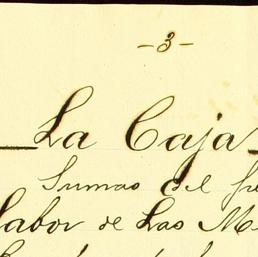 - 3 -
La Caja
Sumas del
labor de Las